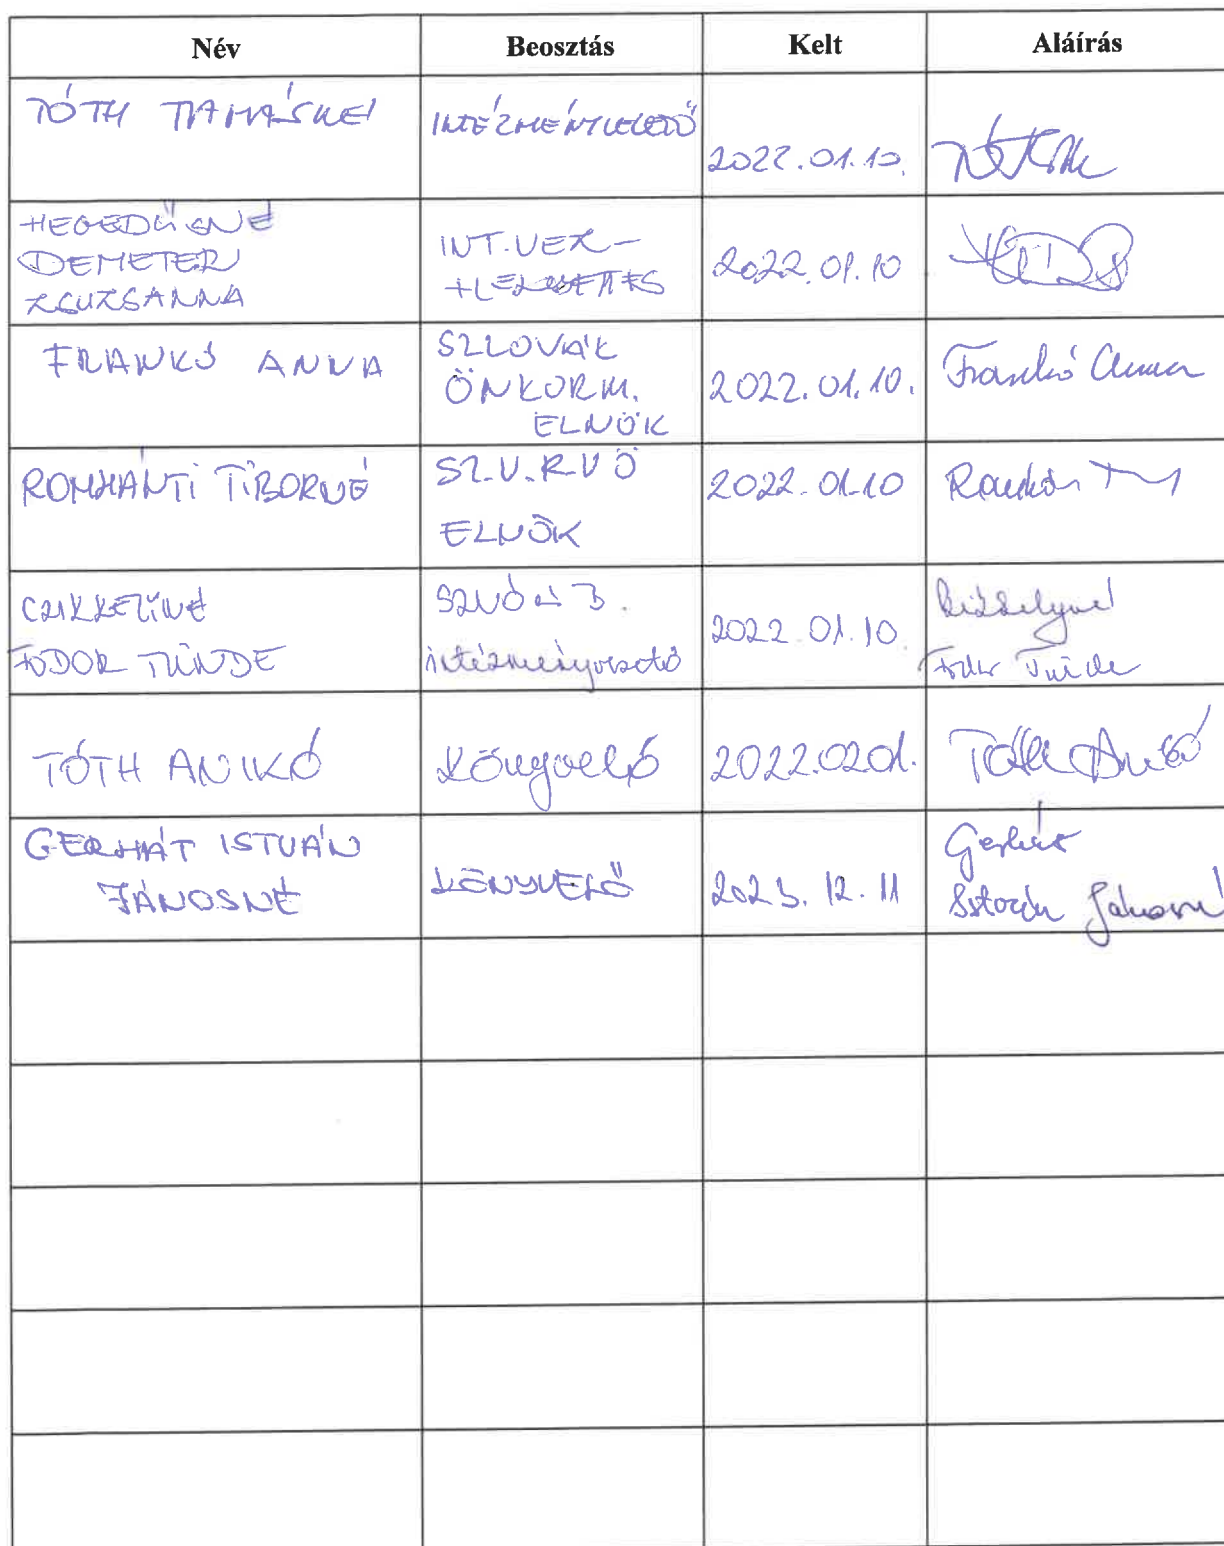 Név Beosztás Kelt Aláírás
TÓTH TAMÁSNÉ INTÉZMÉNYVEZETŐ 2022.01.10.
HEGEDŰSNÉ
DEMETER
ZSUZSANNA
INT.VEZ-
HELYETTES
2022.01.10
FRANKÓ ANNA
SZLOVÁK
ÖNKORM.
ELNÖK
2022.01.10. Frankó Anna
ROMHÁNYI TIBORNÉ
SZ.V.R.V Ö
ELNÖK
2022.01.10
FODOR TÜNDE
intézményvezető
2022.01.10.
Fodor Tünde
TÓTH ANIKÓ Könyvelő 2022.0201. Tóth Anikó
GERHÁT ISTVÁN
JÁNOSNÉ
KÖNYVELŐ 2023.12.11
Gerhát
István Jánosné